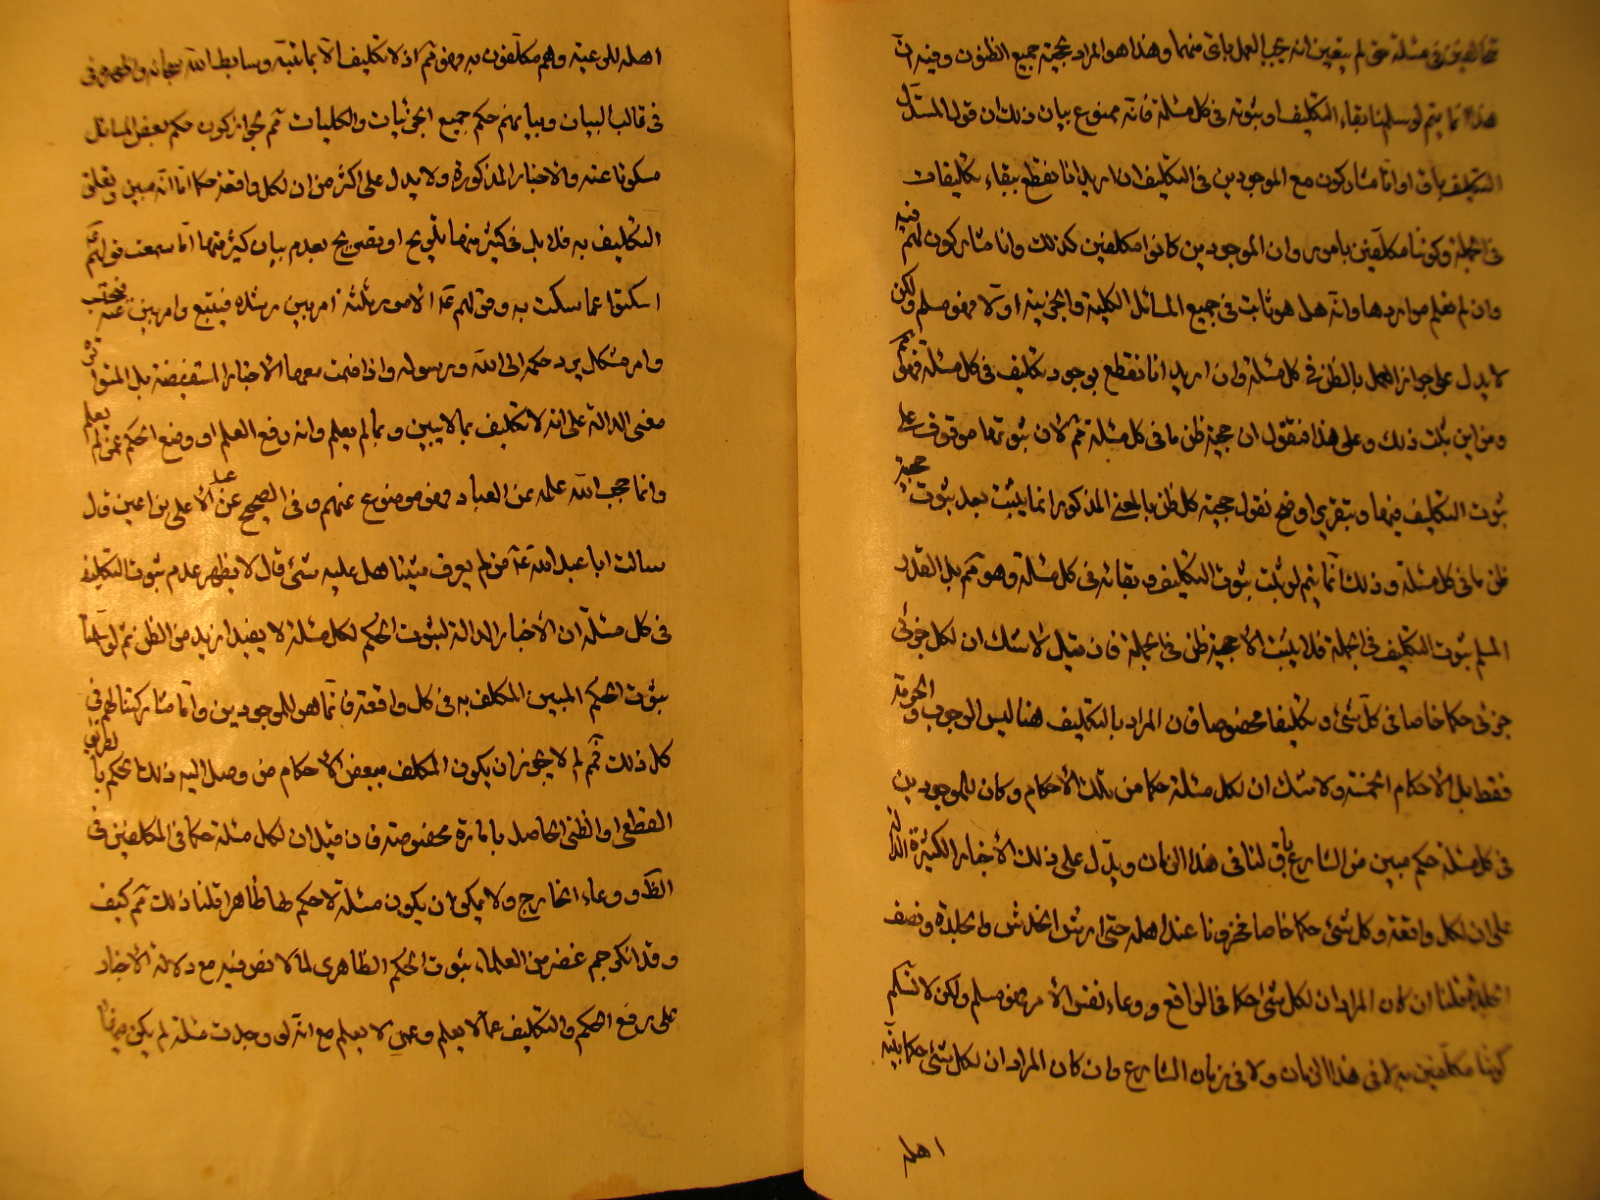 مسئلة حتى لم يتعين انه يجب العمل باى منهما وهذا هو المراد بحجية جميع الظنون وفيه ان
هذا انما يتم لو سلمنا بقاء التكليف وثبوته فى كل مسئلة فانه ممنوع بيان ذلك ان قول المستدل
التكليف باق او انا مشاركون مع الموجودين فى التكليف ان اريد انا نقطع ببقاء تكليفات
فى الجملة وكوننا مكلفين بامور وان الموجودين كانوا مكلفين كذلك وانا مشاركون لهم فيه
وان لم نعلم مواردها وانه هل هو ثابت فى جميع المسائل الكلية والجزئية او لا فهو مسلم ولكن
لا يدل على جواز العمل بالظن فى كل مسئلة وان اريد انا نقطع بوجود تكليف فى كل مسئلة فهو مم
ومن اين ثبت ذلك وعلى هذا فنقول ان حجية ظن ما فى كل مسئلة مم لان ثبوتها موقوف على
ثبوت التكليف فيها وبتقرير اوضح نقول حجية كل ظن بالمعنى المذكور انما يثبت بعد ثبوت حجية
ظن ما فى كل مسئلة وذلك انما يتم لو ثبت ثبوت التكليف وبقائه فى كل مسئلة وهو مم بل القدر
المسلم ثبوت التكليف فى الجملة فلا يثبت الا حجية ظن فى الجملة فان قيل لا شك ان لكل جزئى
جزئى حكما خاصا فى كل شئ وتكليفا مخصوصا فان المراد بالتكليف هنا ليس الوجوب والحرمة
فقط بل الأحكام الخمسة ولا شك ان لكل مسئلة حكما من تلك الأحكام وكان للموجودين
فى كل مسئلة حكم مبين من الشارع باق لنا فى هذا الزمان ويدل على ذلك الأخبار الكثيرة الدالة
على ان لكل واقعة وكل شئ حكما خاصا مخزونا عند اهله حتى ارش الخدش والجلدة ونصف
الجلدة قلنا ان كان المراد ان لكل شئ حكما فى الواقع ووعاء نفس الأمر فهو مسلم ولكن لا نسلم
كوننا مكلفين به لا فى هذا الزمان ولا فى زمان الشارع وان كان المراد ان لكل شئ حكما بينه
اهله
اهله للرعية وهم مكلفون به فهو مم اذ لا تكليف الا بما بينه
فى قالب البيان وبيانهم حكم جميع الجزئيات والكليات مم لجواز كون حكم بعض المسائل
مسكوتا عنه والأخبار المذكورة لا يدل على اكثر من ان لكل واقعة حكما اما انه مبين وتعلق
التكليف به فلا بل فى كثير منها تلويح او تصريح بعدم بيان كثير منها اما سمعت قولهم
اسكتوا عما سكت الله وقولهم الأمور ثلثة امر بين رشده فيتبع وامر بين غيه فيجتنب
وامر مشكل يرد حكمه الى الله ورسوله واذا ضمت معها الأخبار المستفيضة بل المتواترة
معنى الدالة على انه لا تكليف بما لا يبين وبما لم يعلم وانه رفع العلم او وضع الحكم عمن لم يعلم
وانما حجب الله علمه عن العباد فهو موضوع عنهم وفى الصحيح عن عبد الأعلى بن اعين قال
سالت ابا عبد الله ع من لم يعرف شيئا هل عليه شئ قال لا يظهر عدم ثبوت التكليف
فى كل مسئلة ان الأخبار الدالة لثبوت الحكم لكل مسئلة لا يفيد ازيد من الظن ثم لو سلمنا
ثبوت الحكم المبين المكلف به فى كل واقعة فانما هو للموجودين واما مشاركتنا لهم فى
كل ذلك مم لم لا يجوز ان يكون المكلف ببعض الأحكام من وصل اليه ذلك الحكم بالطريق
القطعى او الظنى الحاصل بامارة مخصوصة فان قيل ان لكل مسئلة حكما فى المكلفين فى
الظاهر ووعاء الخارج ولا يمكن ان يكون مسئلة لا حكم لها ظاهرا قلنا ذلك مم كيف
وقد انكر جم غفير من العلماء ثبوت الحكم الظاهرى لما لا نص فيه مع دلالة الأخبار
على رفع الحكم والتكليف عما لا يعلم وعمن لا يعلم مع انه لو وجدت مسئلة لم يكن